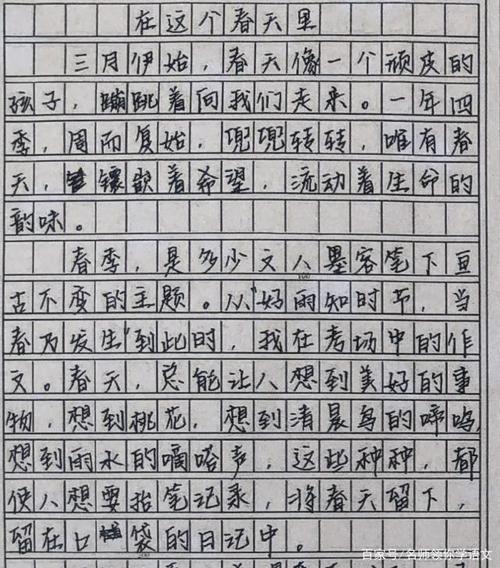 在这个春天里
三月伊始，春天像一个顽皮的
孩子，蹦跳着向我们走来。一年四
季，周而复始，兜兜转转，唯有春
天，镶嵌着希望，流动着生命的
韵味。
春季，是多少文人墨客笔下亘
古不变的主题。从“好雨知时节，当
春乃发生”到此时，我在考场中的作
文。春天，总能让人想到美好的事
物，想到桃花，想到清晨鸟的啼鸣，
想到雨水的嘀嗒声，这些种种，都
使人想要抬笔记录，将春天留下，
留在口袋的日记中。
百家号/名师领你学语文